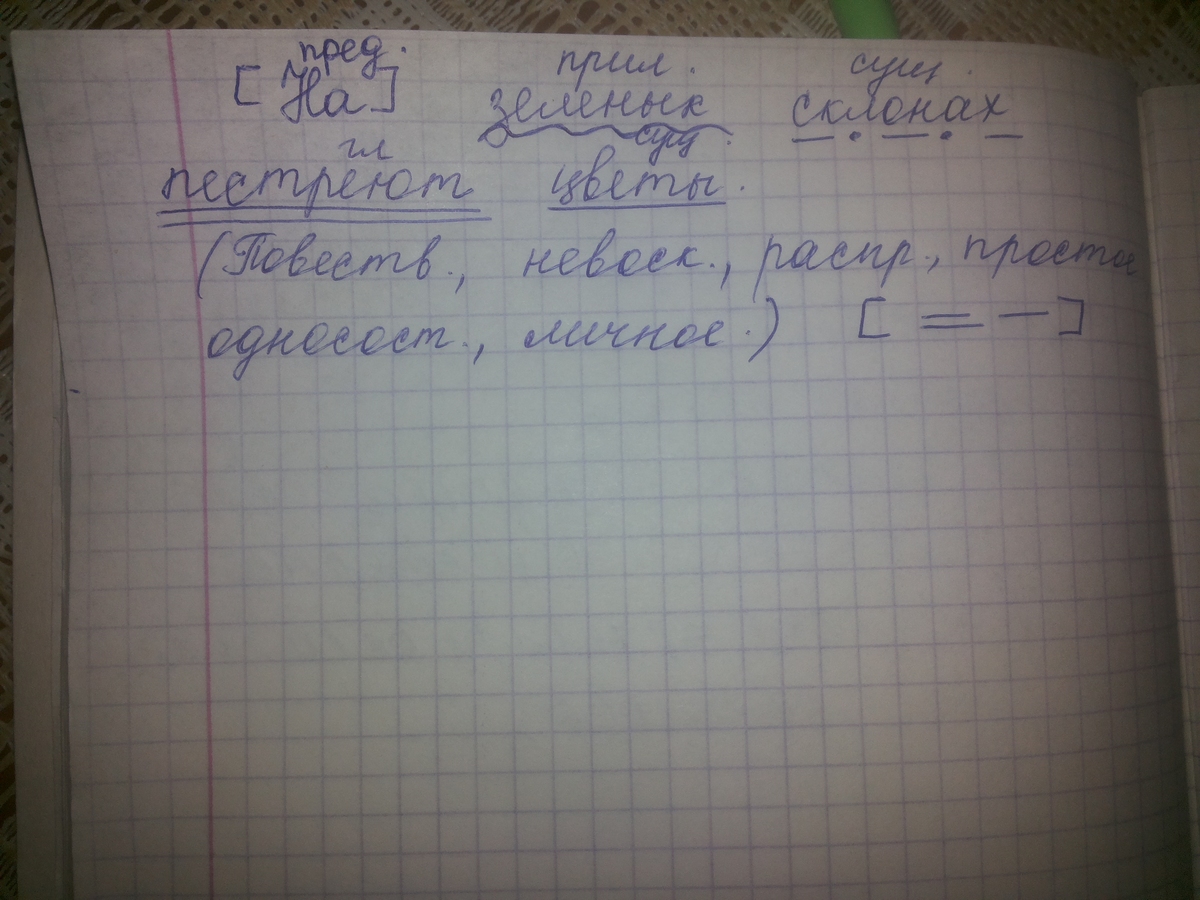 пред. прил. сущ.
[На] зеленых склонах
гл сущ.
пестреют цветы.
(Повеств., невоск., распр., простое
односост., личное.) [ = — ]